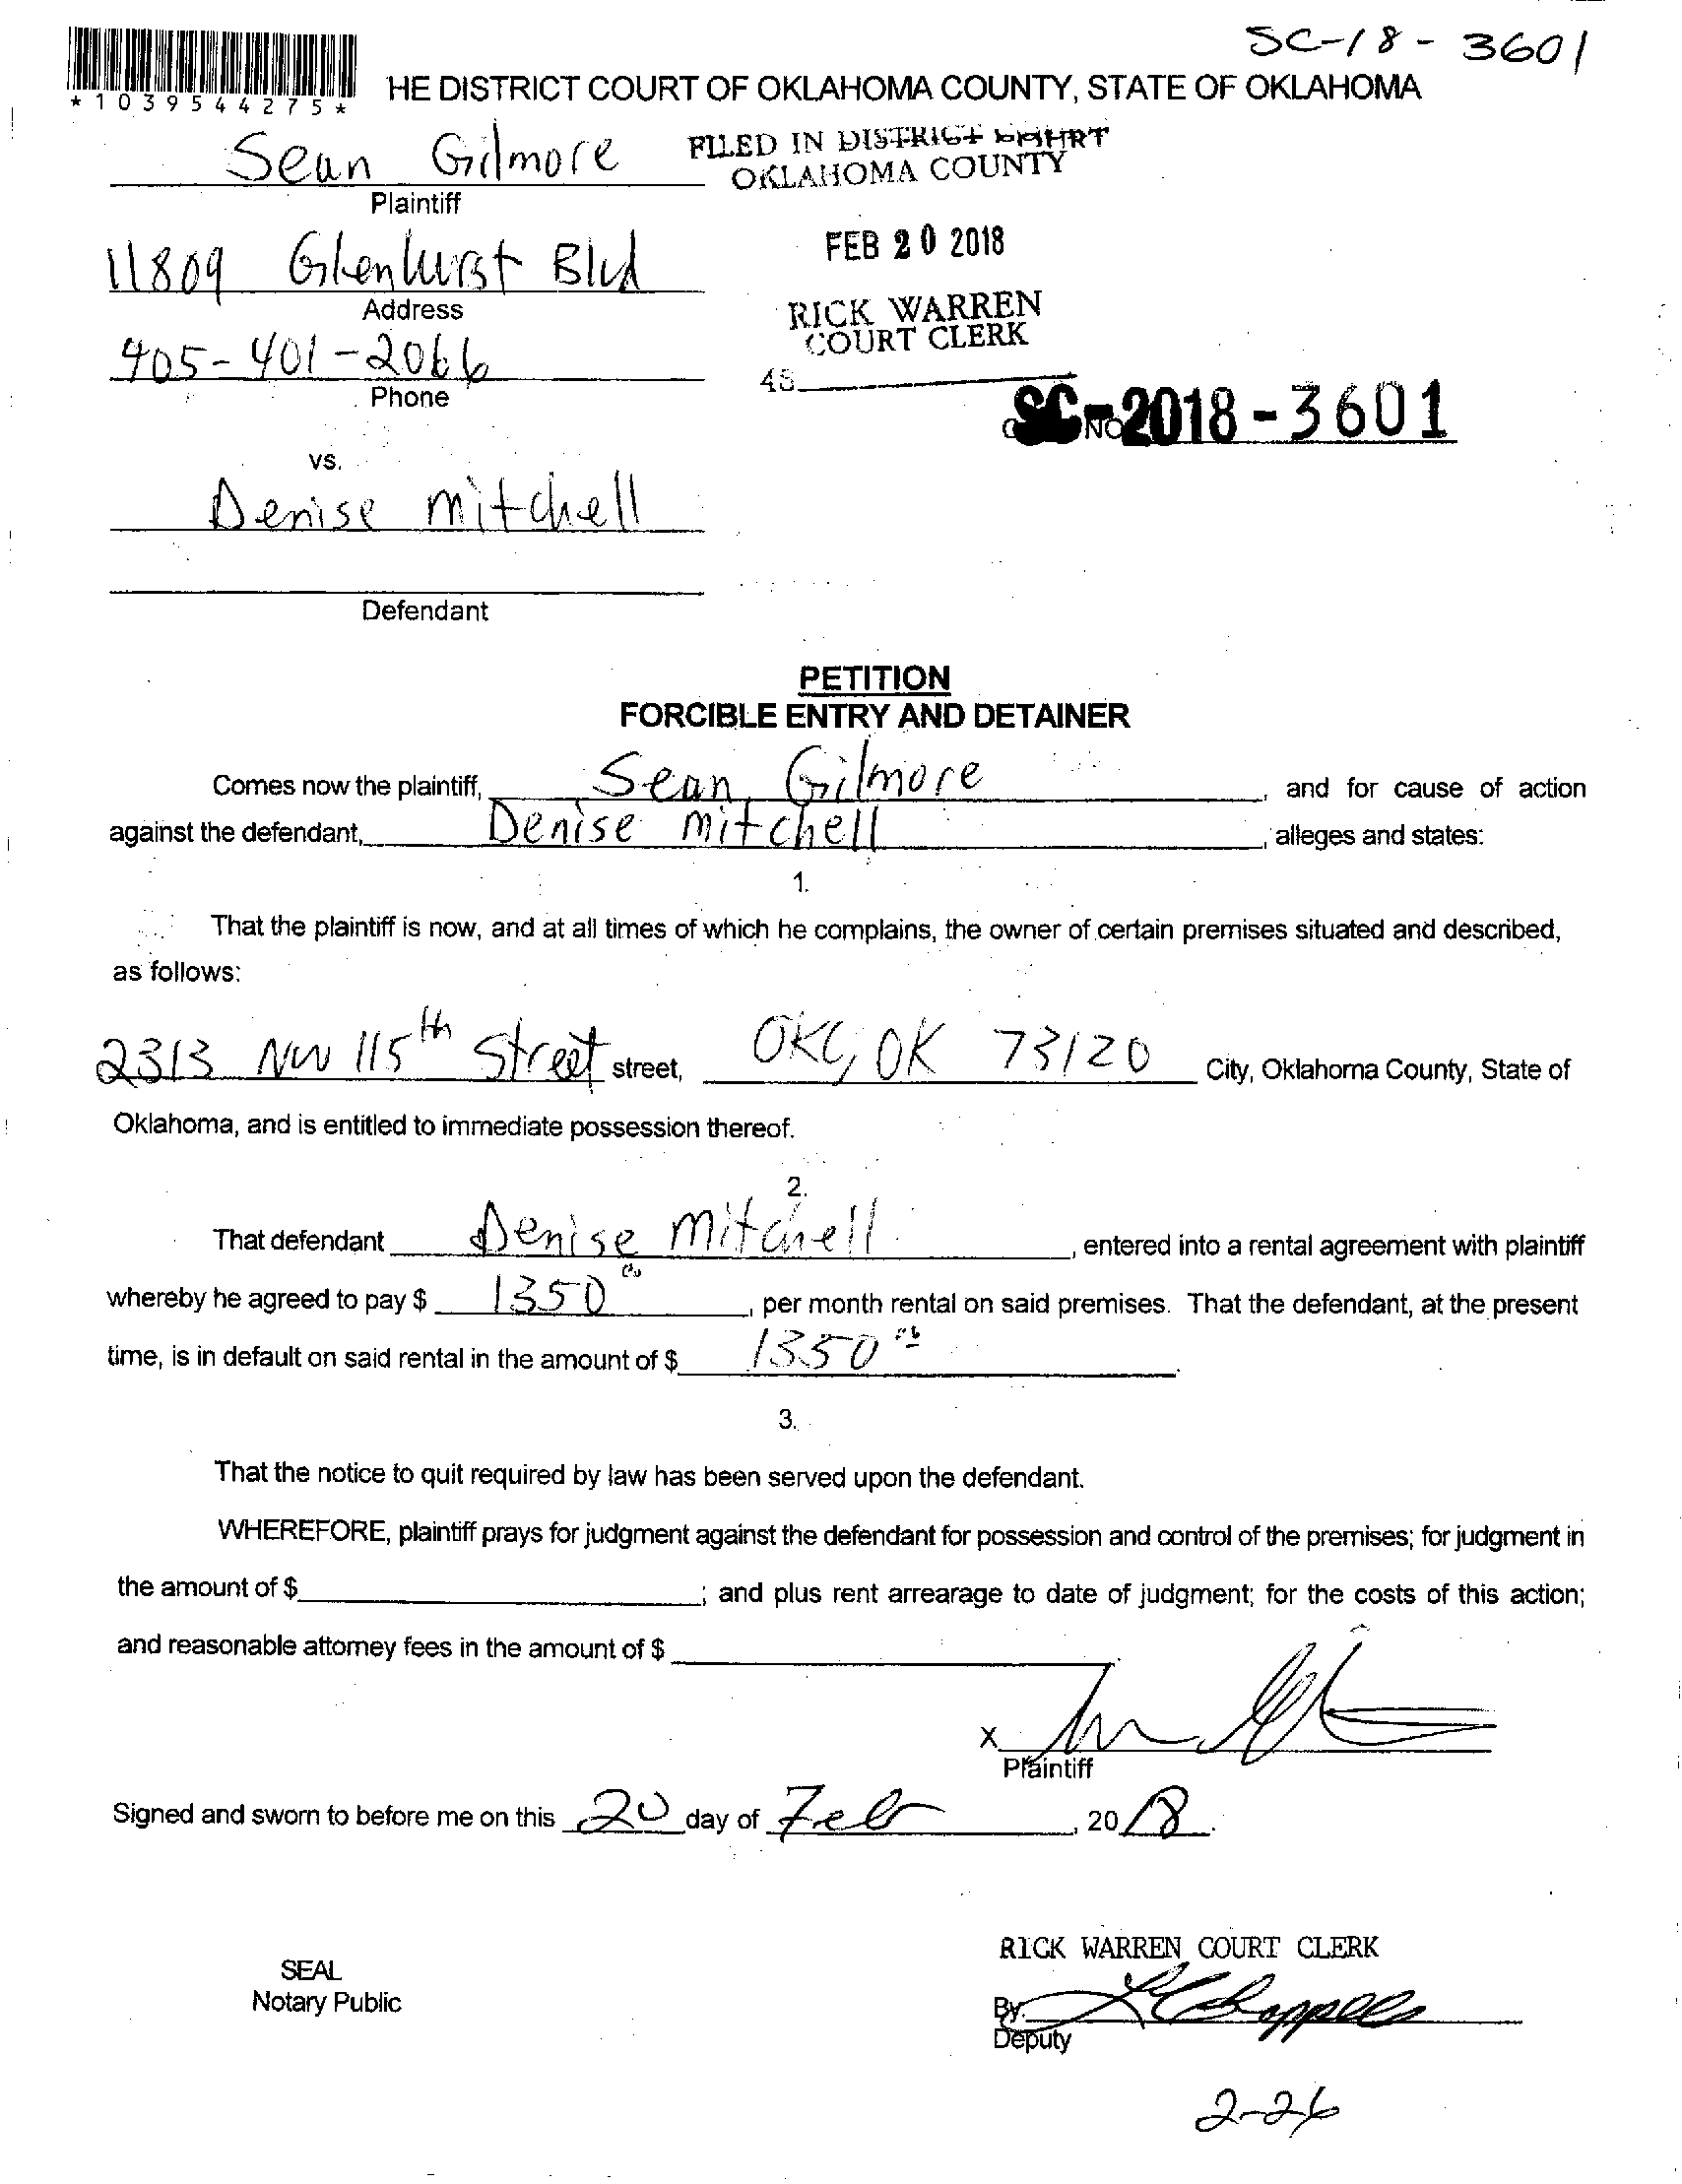 SC-18-3601
*1039544275*
HE DISTRICT COURT OF OKLAHOMA COUNTY, STATE OF OKLAHOMA
Sean Gilmore
Plaintiff
FILED IN DISTRICT COURT
OKLAHOMA COUNTY
FEB 20 2018
RICK WARREN
COURT CLERK
11809 Glenhurst Blvd
Address
405-401-2066
Phone
SC-2018-3601
vs.
Denise Mitchell
Defendant
PETITION
FORCIBLE ENTRY AND DETAINER
Comes now the plaintiff, Sean Gilmore, and for cause of action
against the defendant, Denise Mitchell, alleges and states:
1.
That the plaintiff is now, and at all times of which he complains, the owner of certain premises situated and described,
as follows:
2313 NW 115th Street street, OKC, OK 73120 City, Oklahoma County, State of
Oklahoma, and is entitled to immediate possession thereof.
2.
That defendant Denise Mitchell, entered into a rental agreement with plaintiff
whereby he agreed to pay $ 1350 00, per month rental on said premises. That the defendant, at the present
time, is in default on said rental in the amount of $ 1350 00.
3.
That the notice to quit required by law has been served upon the defendant.
WHEREFORE, plaintiff prays for judgment against the defendant for possession and control of the premises; for judgment in
the amount of $ ; and plus rent arrearage to date of judgment; for the costs of this action;
and reasonable attorney fees in the amount of $
X
Plaintiff
Signed and sworn to before me on this 20 day of Feb, 2018.
SEAL
Notary Public
RICK WARREN COURT CLERK
By:
Deputy
2-26